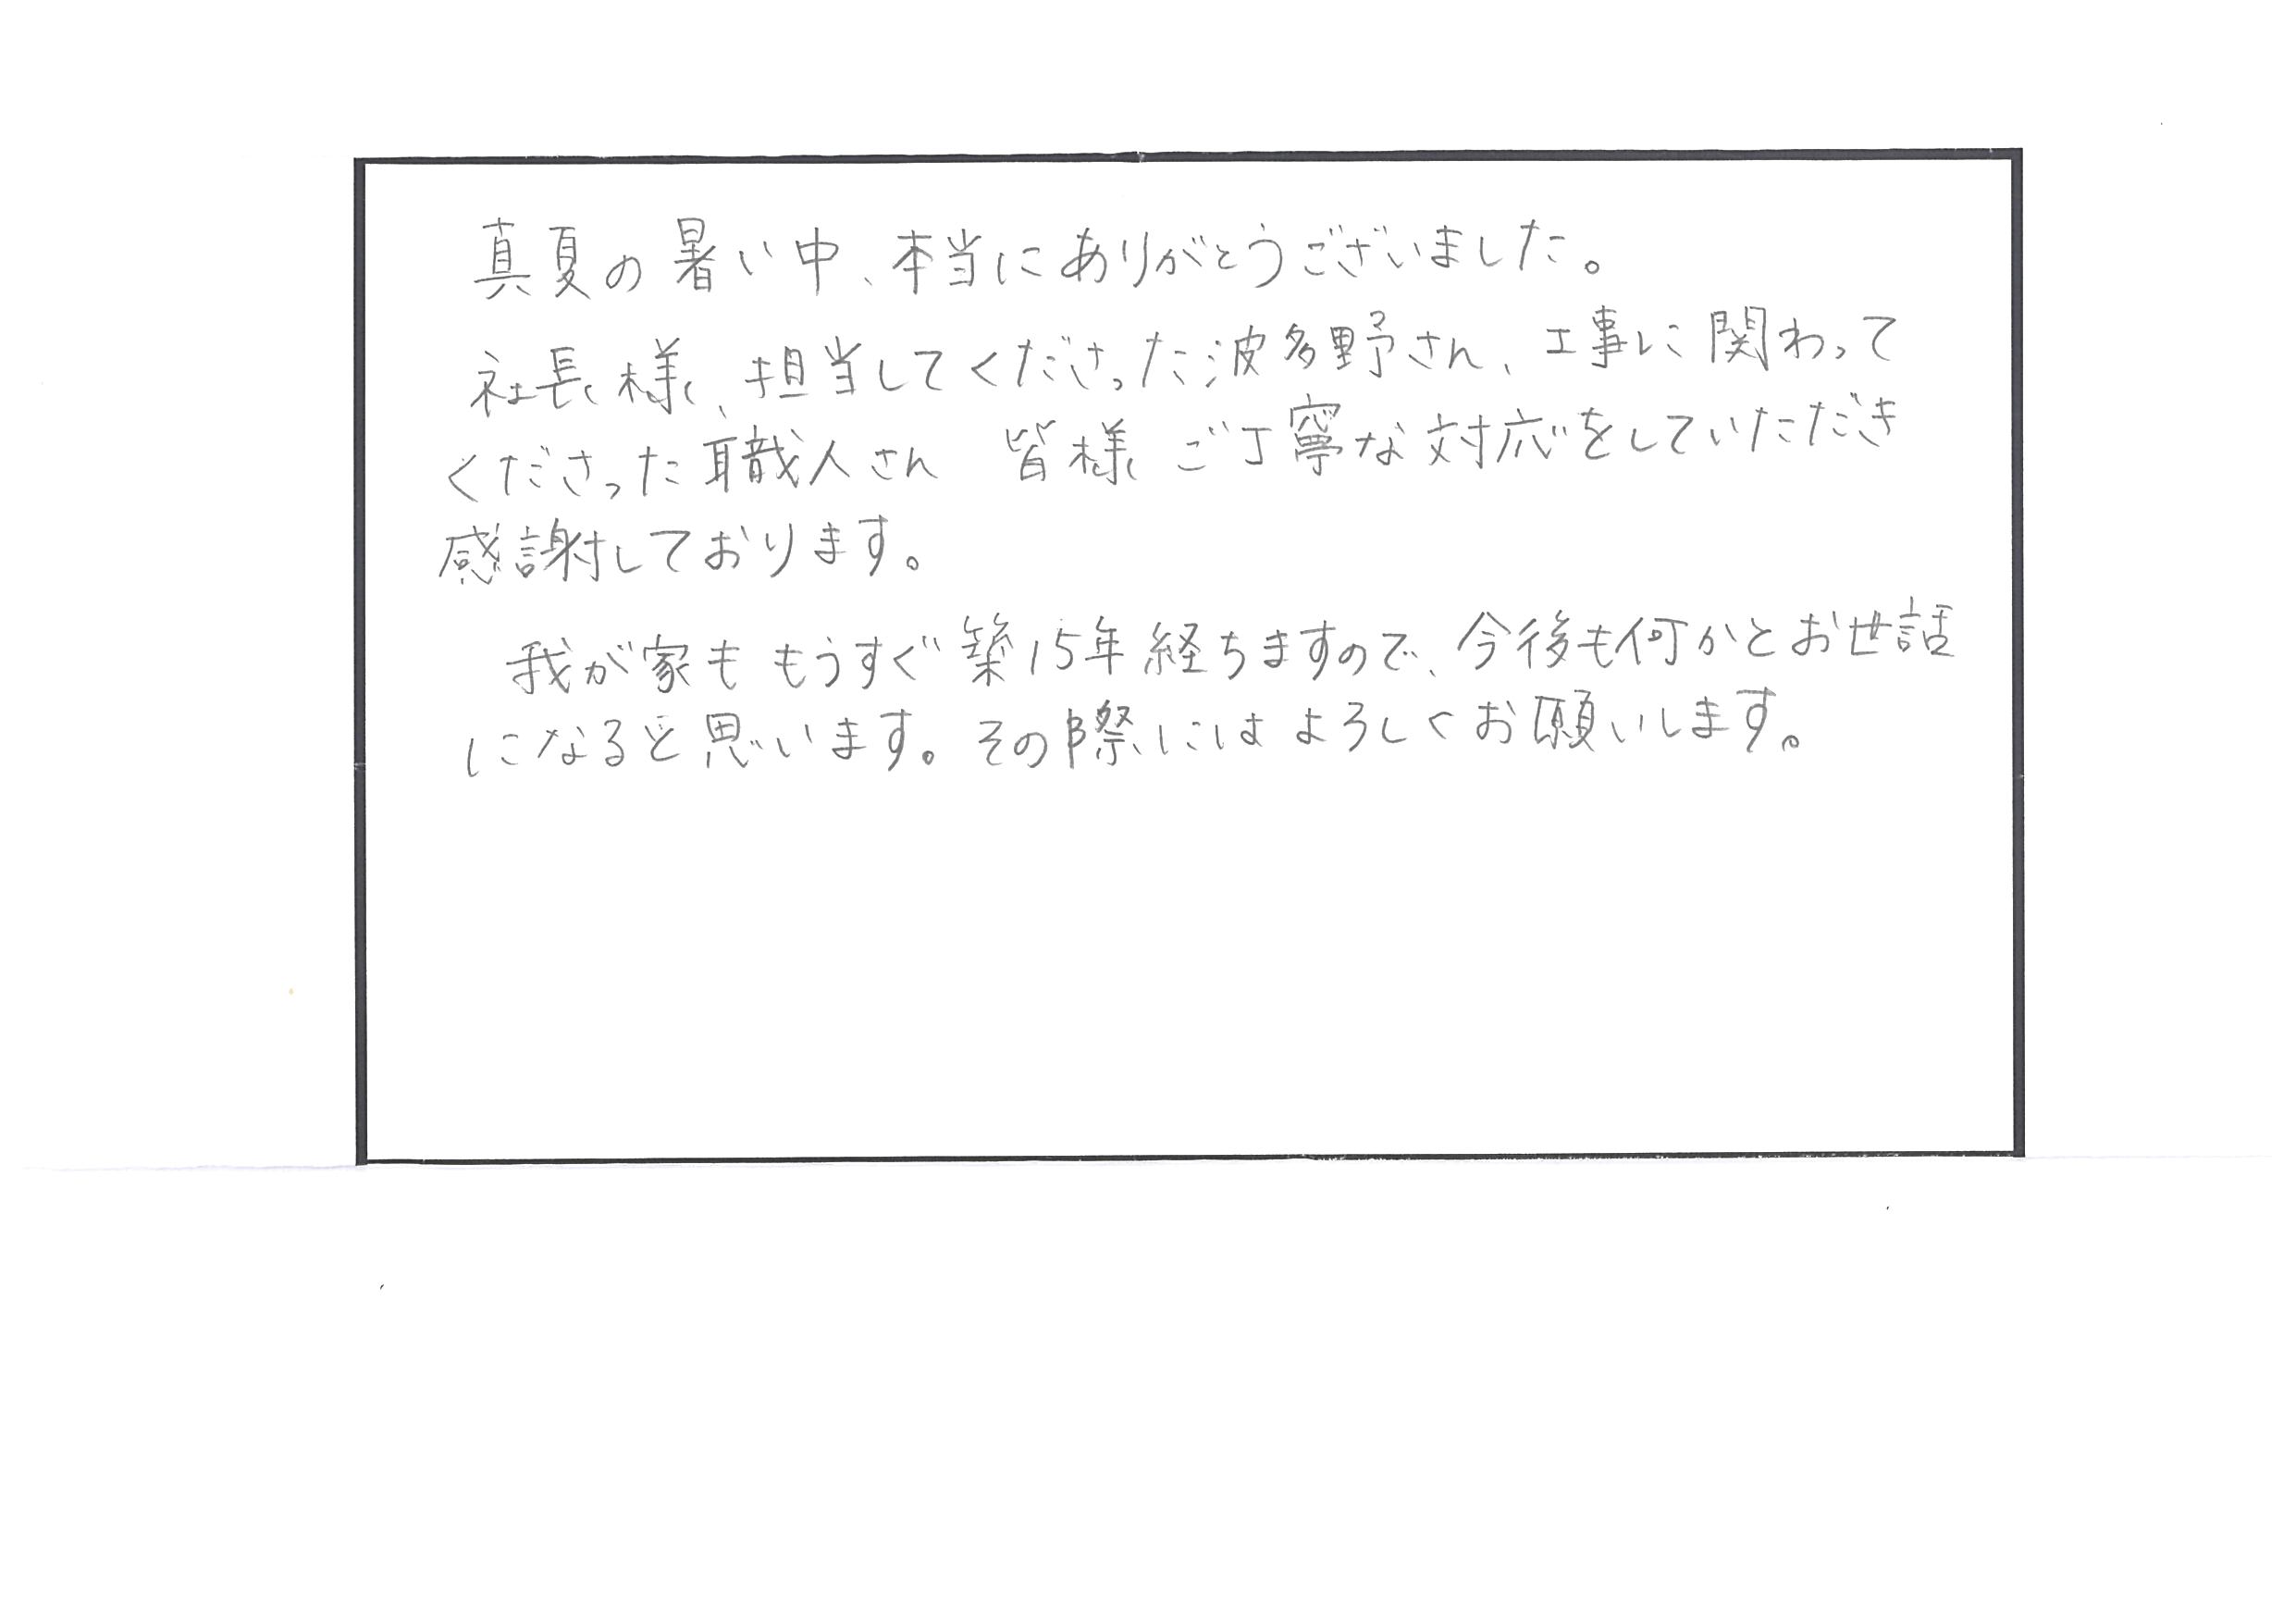 真夏の暑い中、本当にありがとうございました。
社長様、担当してくださった波多野さん、工事に関わって
くださった職人さん 皆様 ご丁寧な対応をしていただき
感謝しております。
我が家も もうすぐ築15年経ちますので、今後も何かとお世話
になると思います。その際にはよろしくお願いします。